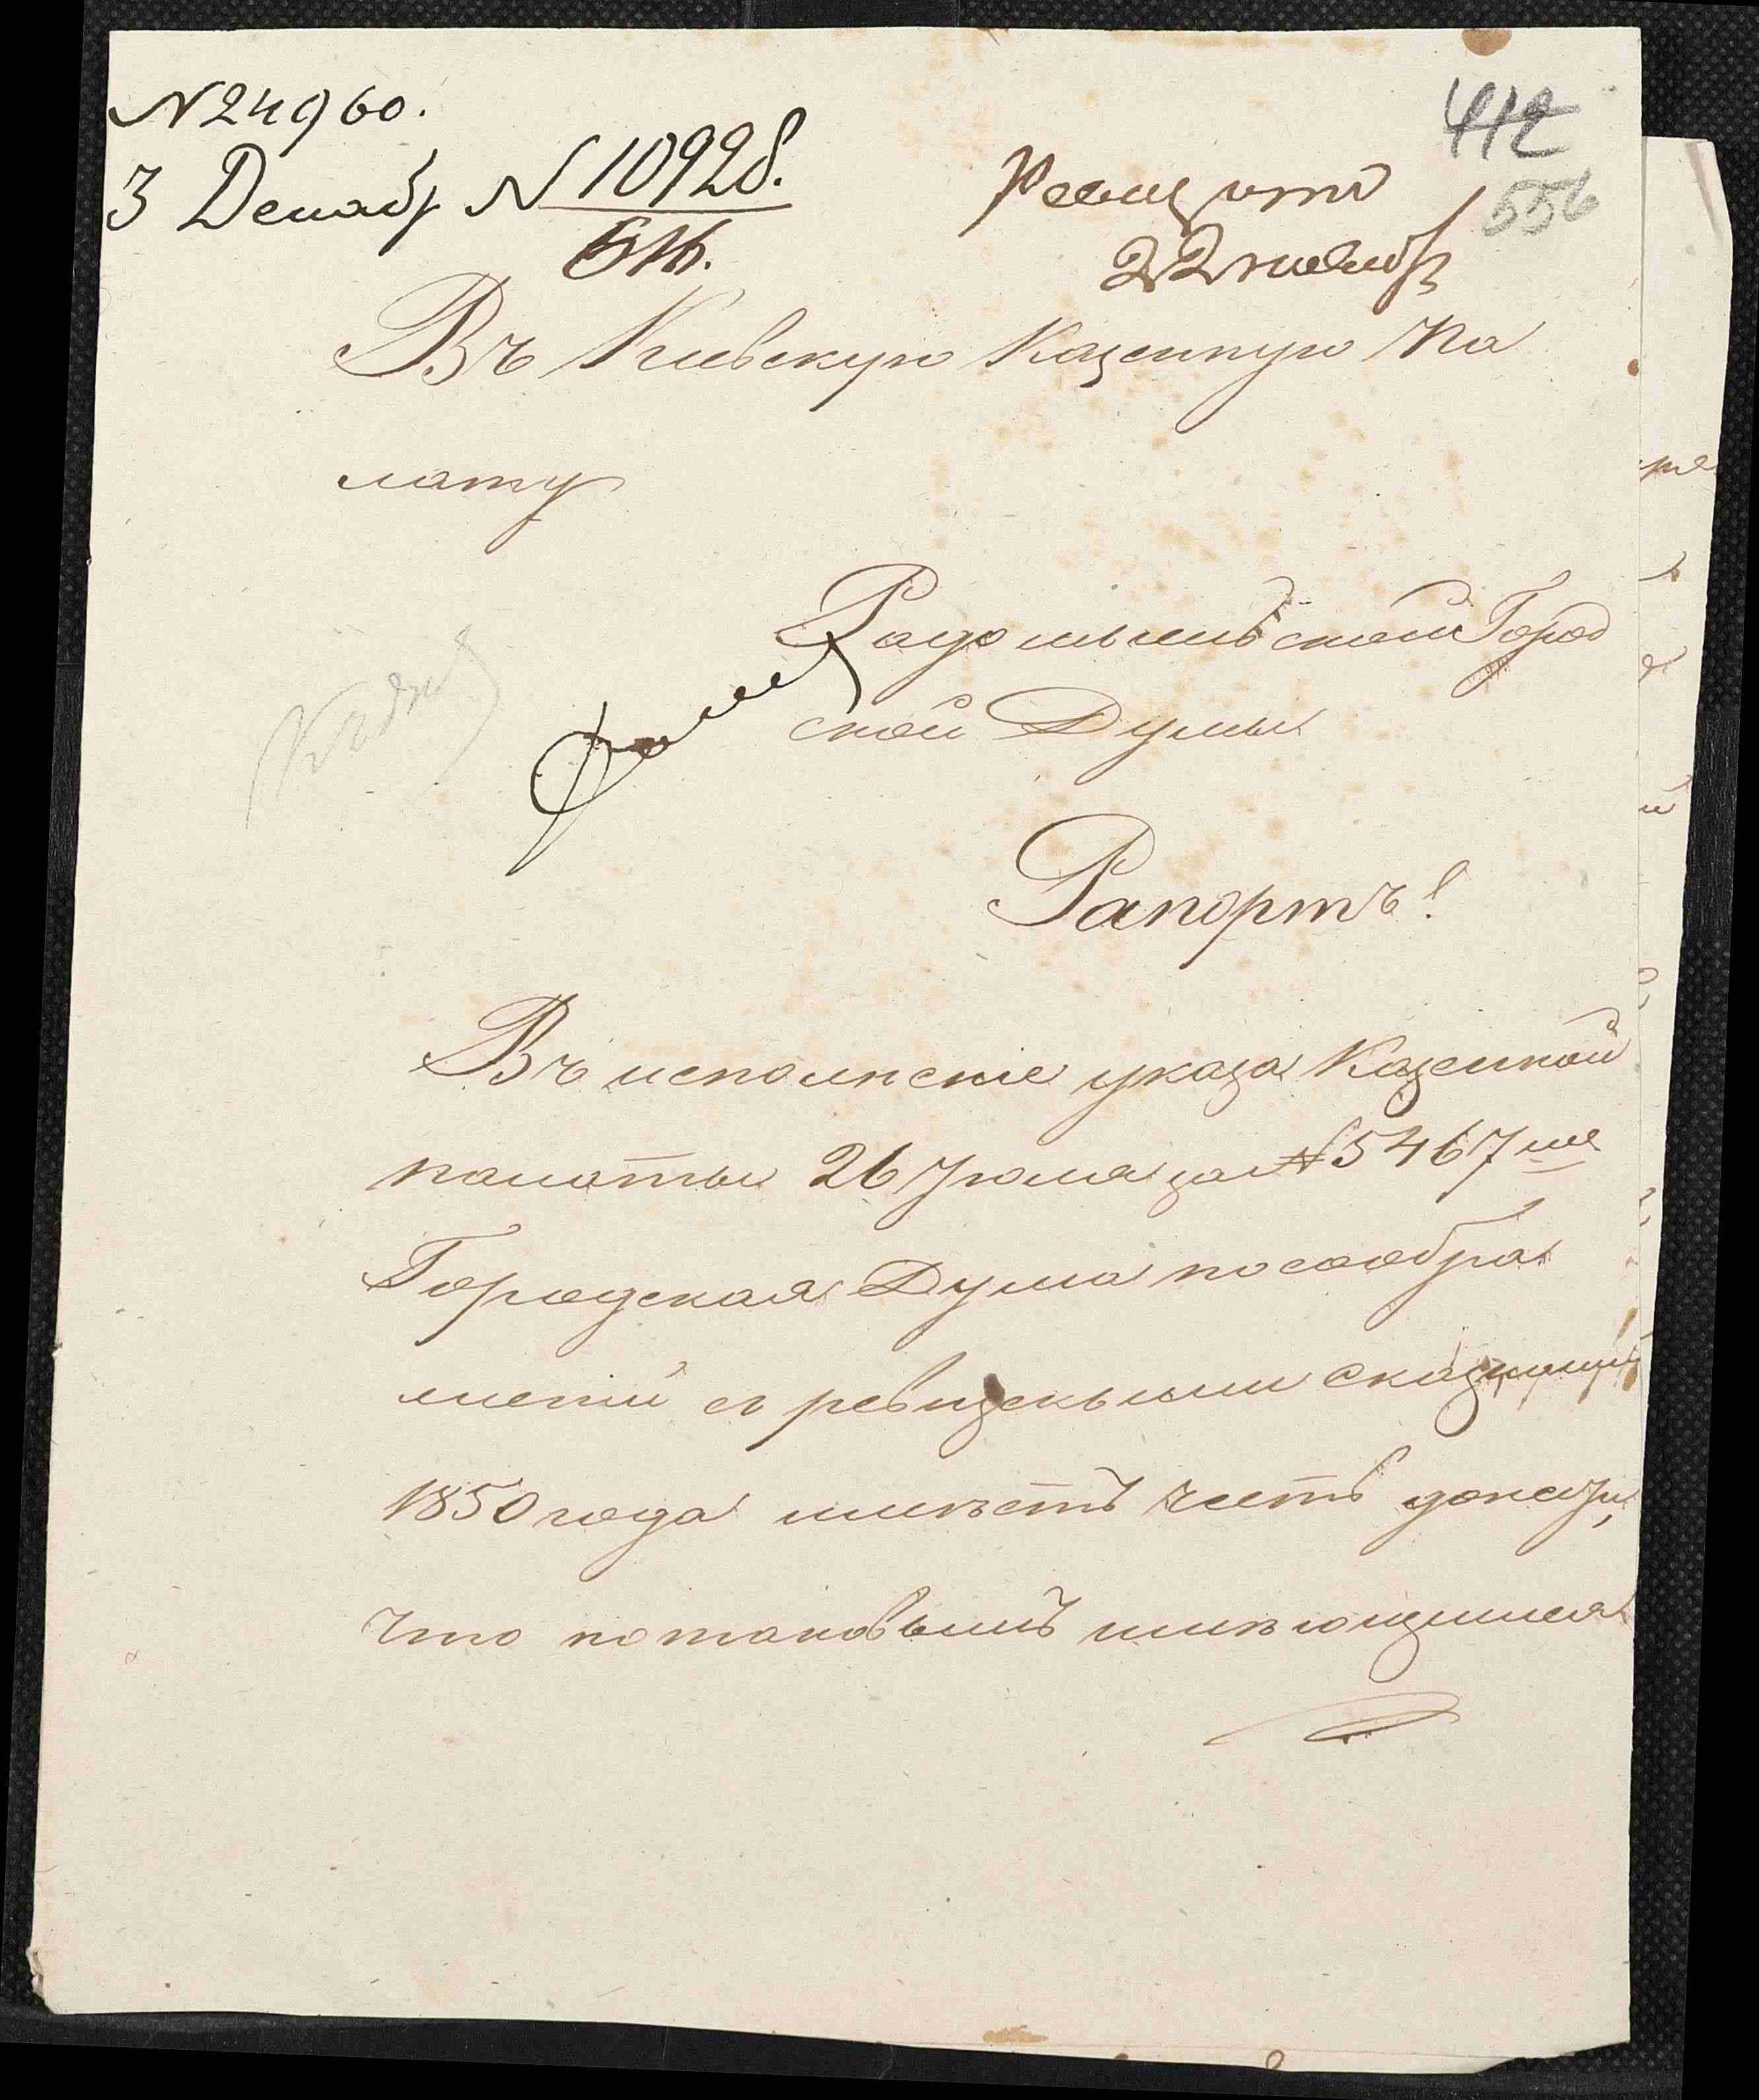 N 24960.
412
3 Декабр N 10928.
556
22 ноября
Въ Кіевскую Казенную Па
лату
Радомысльской Город
ской Думы
Рапортъ!
Въ исполненіе указа Казенной
палаты 26 Іюля за N 5467 ме
Городская Дума по сообра
жени съ ревизскыми сказками
1850 года имѣетъ честь донести,
что по таковымъ имѣющимся